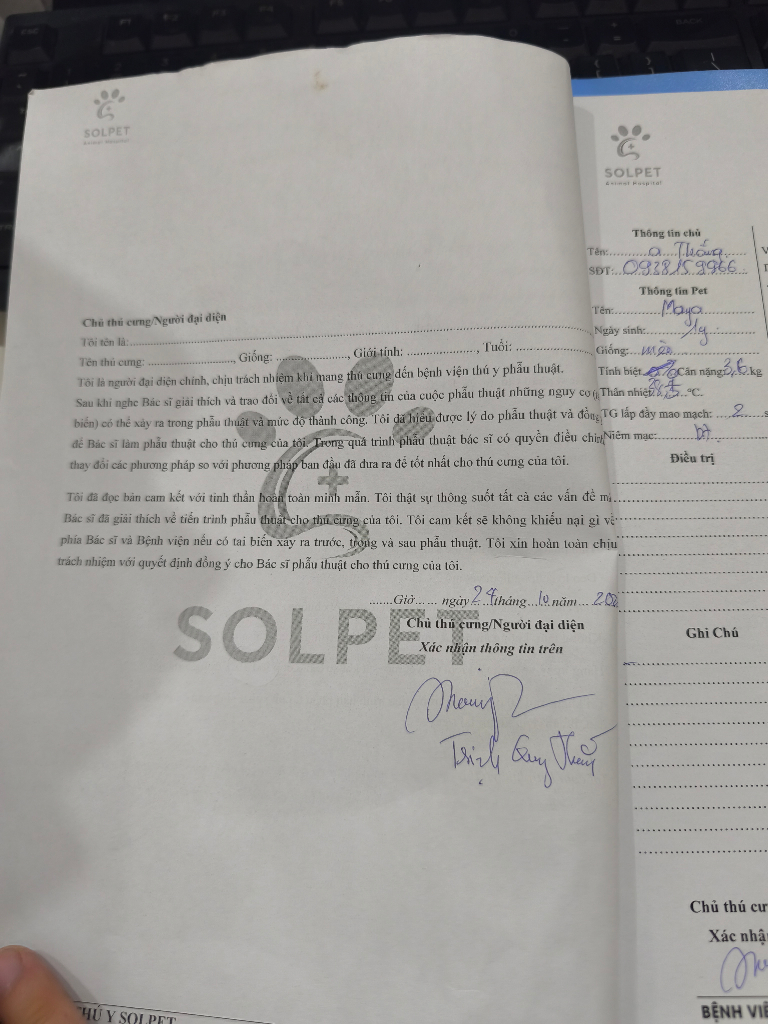 SOLPET
Animal Hospital
Chủ thú cưng/Người đại diện
Tôi tên là:
Tên thú cưng: , Giống: , Giới tính: , Tuổi:
Tôi là người đại diện chính, chịu trách nhiệm khi mang thú cưng đến bệnh viện thú y phẫu thuật.
Sau khi nghe Bác sĩ giải thích và trao đổi về tất cả các thông tin của cuộc phẫu thuật những nguy cơ
biến) có thể xảy ra trong phẫu thuật và mức độ thành công. Tôi đã hiểu được lý do phẫu thuật và đồng
để Bác sĩ làm phẫu thuật cho thú cưng của tôi. Trong quá trình phẫu thuật bác sĩ có quyền điều
thay đổi các phương pháp so với phương pháp ban đầu đã đưa ra để tốt nhất cho thú cưng của tôi.
Tôi đã đọc bản cam kết với tinh thần hoàn toàn minh mẫn. Tôi thật sự thông suốt tất cả các vấn đề
Bác sĩ đã giải thích về tiến trình phẫu thuật cho thú cưng của tôi. Tôi cam kết sẽ không khiếu nại gì về
phía Bác sĩ và Bệnh viện nếu có tai biến xảy ra trước, trong và sau phẫu thuật. Tôi xin hoàn toàn chịu
trách nhiệm với quyết định đồng ý cho Bác sĩ phẫu thuật cho thú cưng của tôi.
Giờ ngày 24 tháng 10 năm 202
Chủ thú cưng/Người đại diện
Xác nhận thông tin trên
SOLPET
Trịnh Quang Thắng
THÚ Y SOLPET
SOLPET
Animal Hospital
Thông tin chủ
Tên: a Thắng
SĐT: 0938159966
Thông tin Pet
Tên: Maya
Ngày sinh: 1g
Giống: mèo
Tính biệt Cân nặng: 3,6 kg
Thân nhiệt °C.
TG lấp đầy mao mạch: 2 s
Niêm mạc: bt
Điều trị
Ghi Chú
Chủ thú cư
Xác nhậ
BỆNH VIỆ